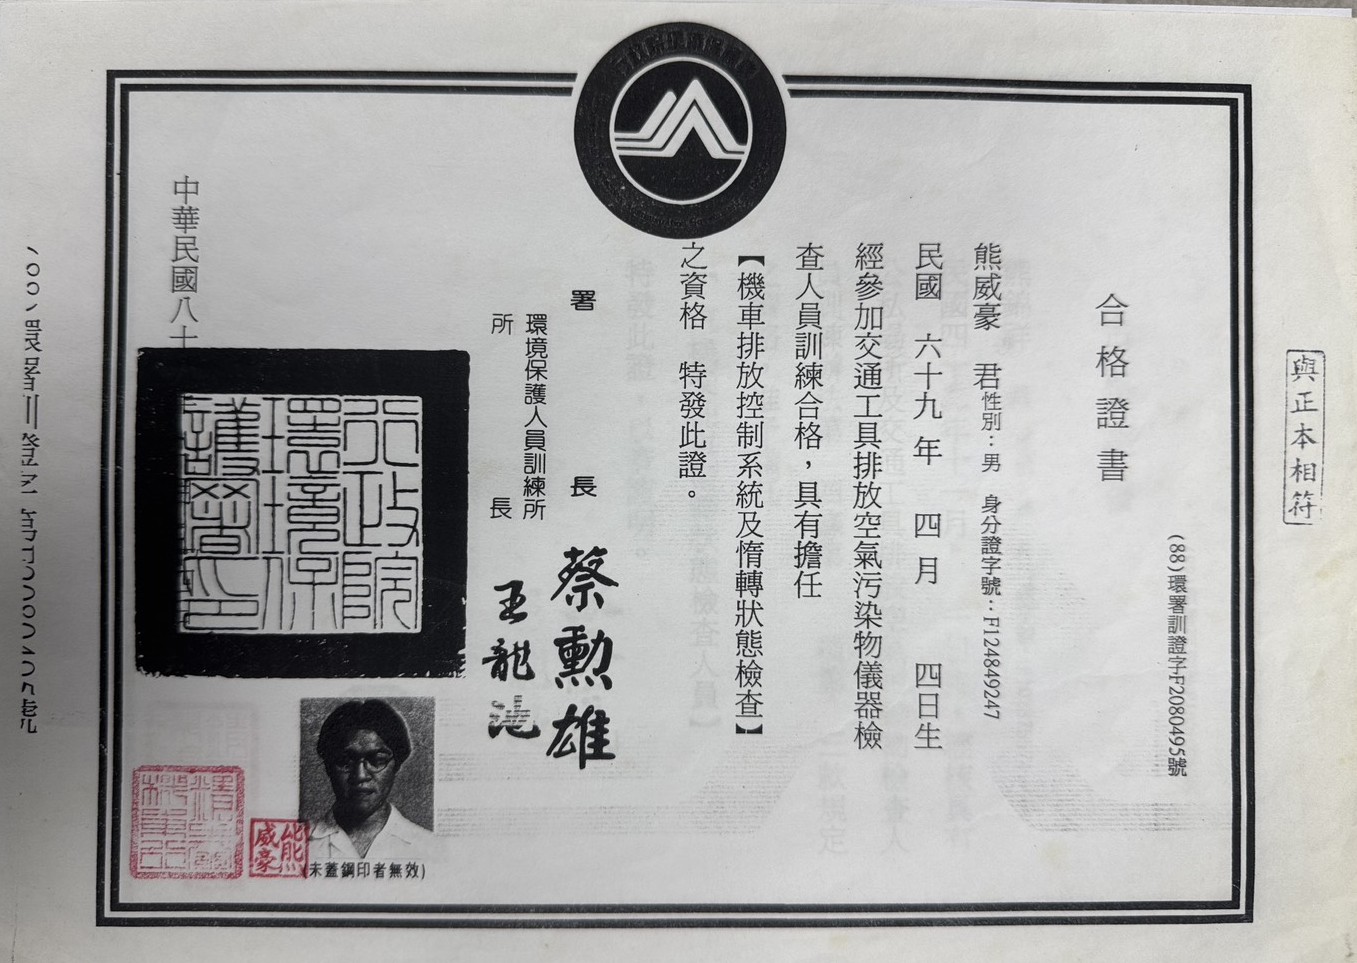 與正本相符
(88)環署訓證字F2080495號
合格證書
熊威豪 君性別：男 身分證字號：F124849247
民國 六十九年 四月 四日生
經參加交通工具排放空氣污染物儀器檢
查人員訓練合格，具有擔任
【機車排放控制系統及惰轉狀態檢查】
之資格 特發此證。
署長 蔡勳雄
環境保護人員訓練所
所長 王龍池
行政院環境保護署印
中華民國八十
(未蓋鋼印者無效)
熊威豪